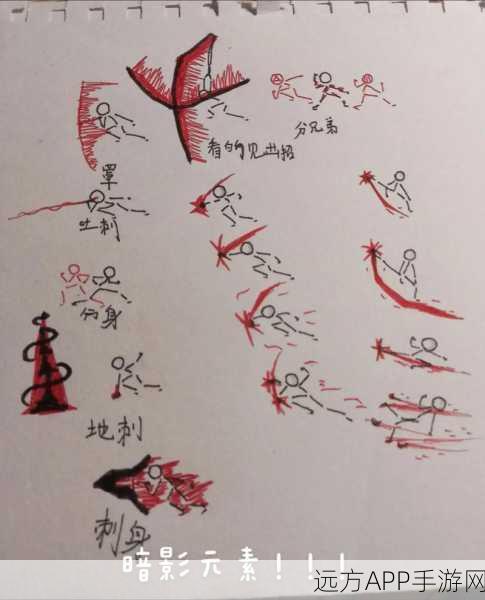 分兄弟
看的见出招
罩
吐刺
分身
地刺
刺身
暗影元素！！！
远方APP手游网